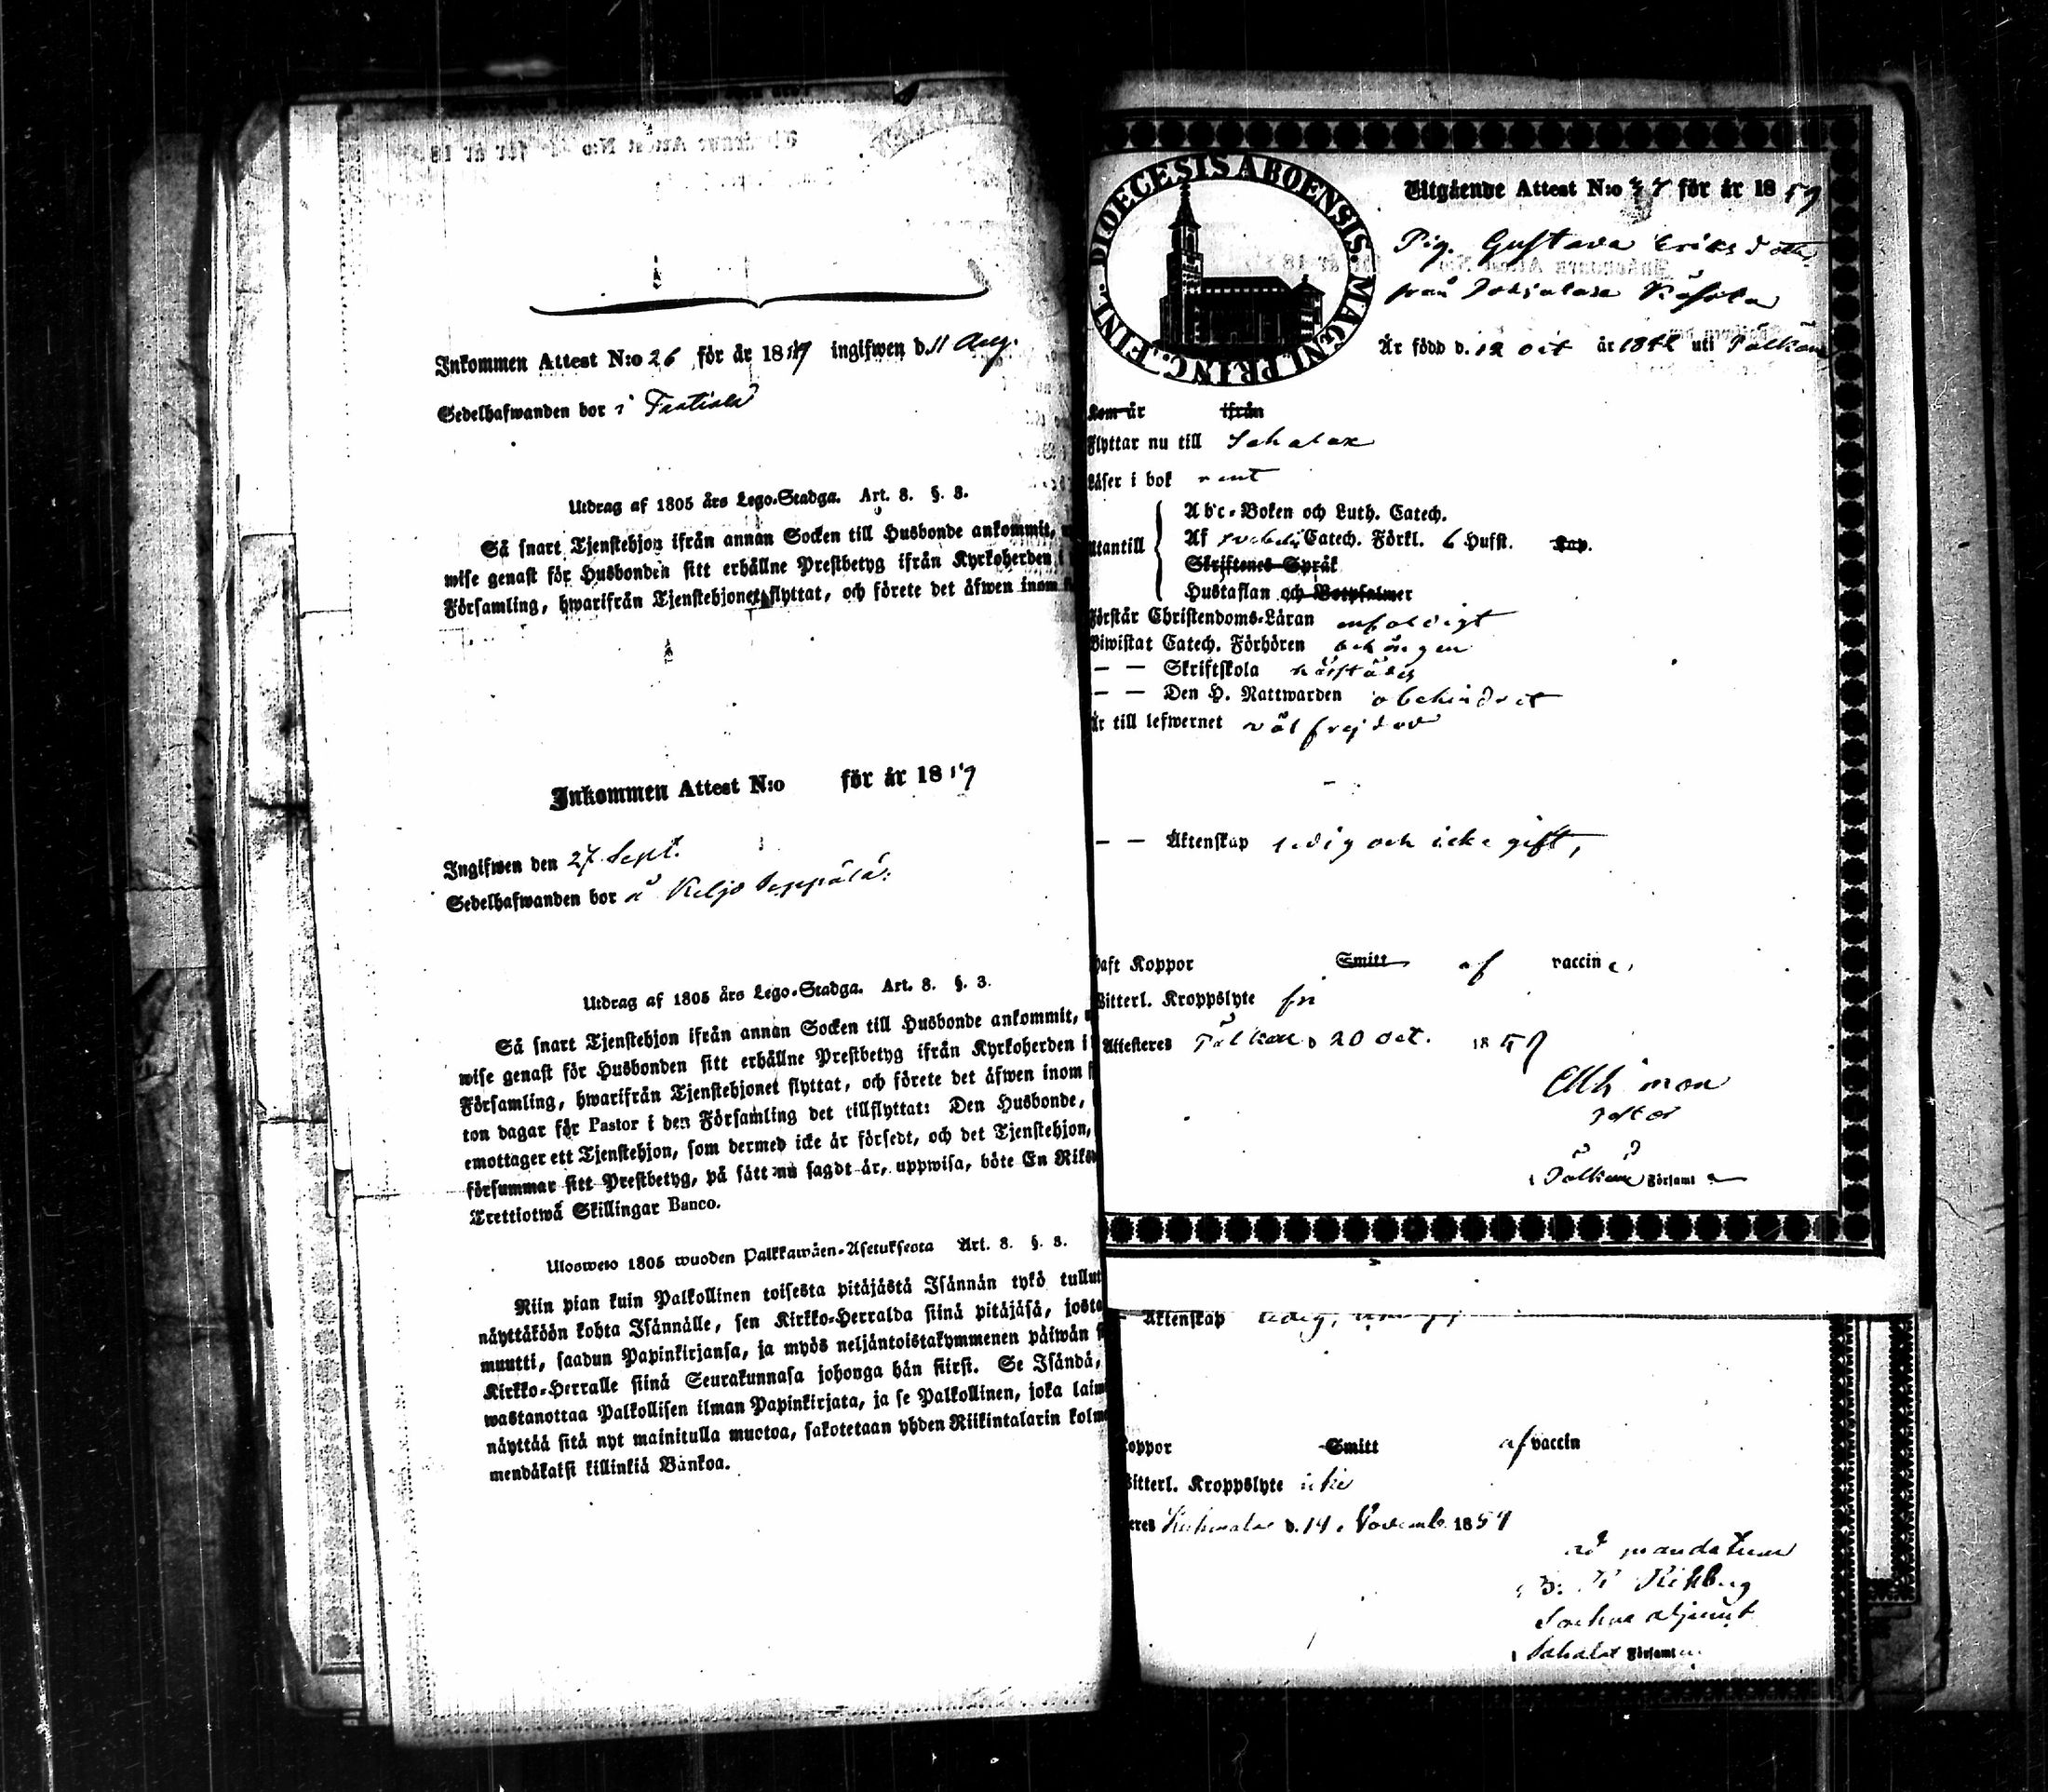 Inkommen Attest N:o 26 för år 1859 ingifwen d. 11 Aug.
Sedelhafwanden bor i
Utdrag af 1805 års Lego-Stadga. Art. 8. §. 3.
Så snart Tjenstehjon ifrån annan Socken till Husbonde ankommit,
wise genast för Husbonden sitt erhållne Prestbetyg ifrån Kyrkoherden i
Församling, hwarifrån Tjenstehjonet flyttat, och förete det äfwen inom
Inkommen Attest N:o för år 1859
Ingifwen den 27 Sept.
Sedelhafwanden bor å Keljo Seppälä.
Utdrag af 1805 års Lego-Stadga. Art. 8. §. 3.
Så snart Tjenstehjon ifrån annan Socken till Husbonde ankommit,
wise genast för Husbonden sitt erhållne Prestbetyg ifrån Kyrkoherden i
Församling, hwarifrån Tjenstehjonet flyttat, och förete det äfwen inom
ton dagar för Pastor i den Församling det tillflyttat: Den Husbonde,
emottager ett Tjenstehjon, som dermed icke är försedt, och det Tjenstehjon,
försummar sitt Prestbetyg, på sätt nu sagdt är, uppwisa, böte En Riks
Trettiotwå Skillingar Banco.
Ulosweto 1805 wuoden Palkkawäen-Asetuksesta Art. 8. §. 3.
Niin pian kuin Palkollinen toisesta pitäjästä Isännän tykö tullut
näyttäköön kohta Isännälle, sen Kirkko-Herralda siinä pitäjäsä, josta
muutti, saadun Papinkirjansa, ja myös neljäntoistakymmenen päiwän
Kirkko-Herralle siinä Seurakunnasa johonga hän siirsi. Se Isändä,
wastanottaa Palkollisen ilman Papinkirjata, ja se Palkollinen, joka laim
näyttää sitä nyt mainitulla muotoa, sakotetaan yhden Riikintalarin kolme
mendäkatsi killinkiä Bankoa.
DIOECESIS ABOENSIS. MAGNI. PRINC. FINL.
Utgående Attest N:o för år 1859
Pig. Gustava Eriksdotter
från
Är född d. 12 oct år 1842 uti Pälkäne
Kom år ifrån
Flyttar nu till Sahalax
Läser i bok rent
Utantill
Abc-Boken och Luth. Catech.
Af Svebelii Catech. Förkl. 6 Hufst. Kap.
Skriftenes Språk
Hustaflan och Botpsalmer
Förstår Christendoms-Läran enfaldigt
Biwistat Catech. Förhören behörigen
— — Skriftskola härstädes
— — Den H. Nattwarden obehindrat
Är till lefwernet välfrejdad
— — Äktenskap ledig och icke gift,
haft Koppor Smitt af vaccine,
Witterl. Kroppslyte fri
Attesteres Pälkäne d 20 oct. 1859
Pastor
i Pälkäne Församl
— Äktenskap ledig,
Koppor Smitt af vaccin
Witterl. Kroppslyte icke
eres Kuhmalax d. 14 Novemb. 1859
ad mandatum
Sockne adjunct
i Sahalax Församl